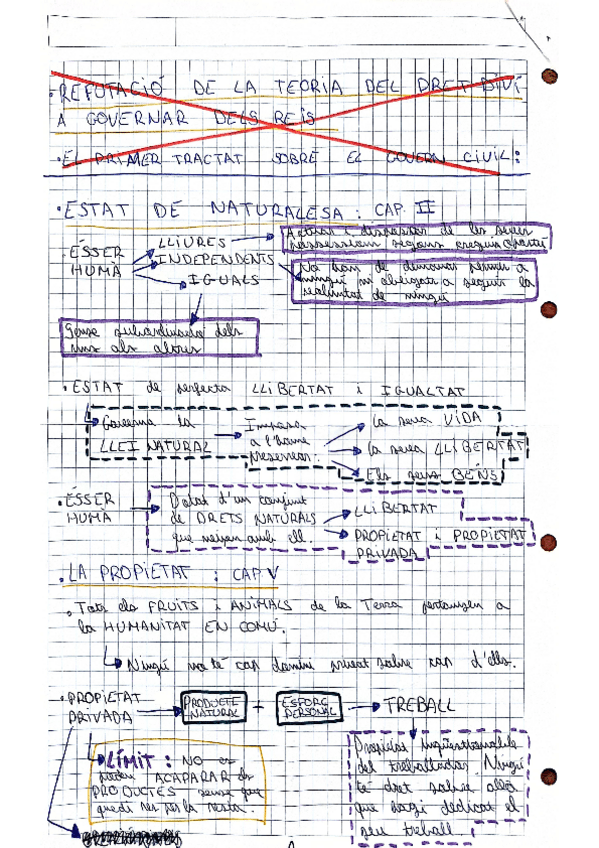 ·REFUTACIÓ DE LA TEORIA DEL DRET DIVÍ
A GOVERNAR DELS REIS
·EL PRIMER TRACTAT SOBRE EL GOVERN CIVIL:
·ESTAT DE NATURALESA: CAP. II
·ÉSSER HUMÀ
LLIURES
INDEPENDENTS
IGUALS
Actuar i disposar de les seves
possessions segons creguin oportú
No han de demanar permís a
ningú ni obligats a seguir la
voluntat de ningú
Sense subordinació dels
uns als altres
·ESTAT de perfecta LLIBERTAT i IGUALTAT
Governa la
LLEI NATURAL
Imposa
a l'home
preservar:
La seva VIDA
La seva LLIBERTAT
Els seus BÉNS
·ÉSSER
HUMÀ
Dotat d'un conjunt
de DRETS NATURALS
que neixen amb ell.
LLIBERTAT
PROPIETAT i PROPIETAT
PRIVADA
·LA PROPIETAT: CAP. V
·Tots els FRUITS i ANIMALS de la Terra pertanyen a
la HUMANITAT EN COMÚ.
Ningú no té cap domini privat sobre cap d'ells.
·PROPIETAT
PRIVADA
PRODUCTE
NATURAL
+
ESFORÇ
PERSONAL
TREBALL
LÍMIT: NO es
poden ACAPARAR els
PRODUCTES sense que
quedi res per la resta.
Propietat inqüestionable
del treballador. Ningú
té dret sobre allò
que hagi dedicat el
seu treball.